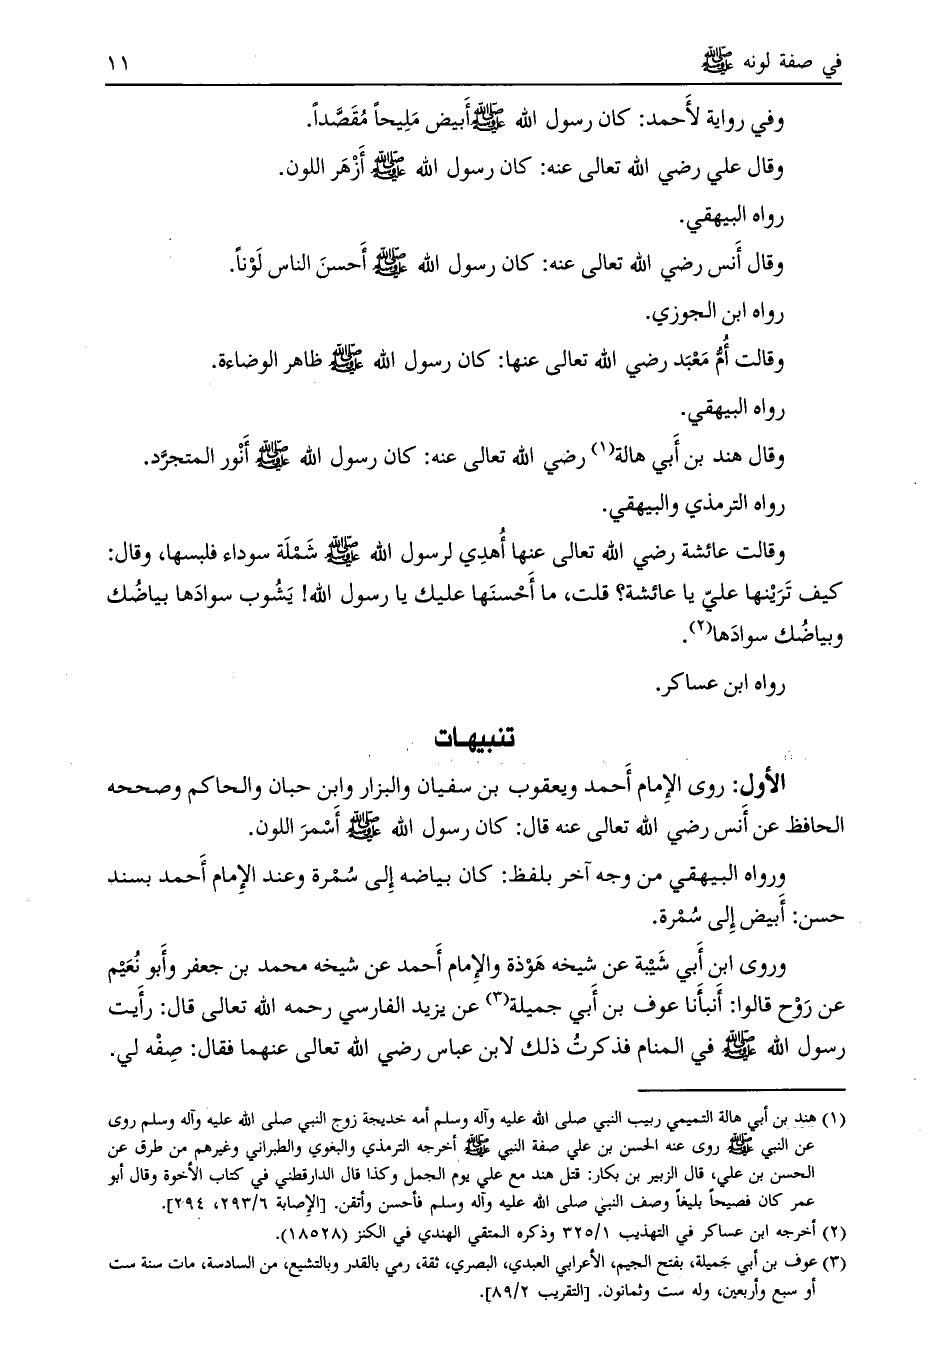 في صفة لونه ﷺ ١١
وفي رواية لأَحمد: كان رسول الله ﷺ أَبيض مَلِيحاً مُقَصَّداً.
وقال علي رضي الله تعالى عنه: كان رسول الله ﷺ أَزْهَر اللون.
رواه البيهقي.
وقال أَنس رضي الله تعالى عنه: كان رسول الله ﷺ أَحسنَ الناس لَوْناً.
رواه ابن الجوزي.
وقالت أُمُّ مَعْبَد رضي الله تعالى عنها: كان رسول الله ﷺ ظاهر الوضاءة.
رواه البيهقي.
وقال هند بن أَبي هالة(١) رضي الله تعالى عنه: كان رسول الله ﷺ أَنْور المتجرَّد.
رواه الترمذي والبيهقي.
وقالت عائشة رضي الله تعالى عنها أُهدِي لرسول الله ﷺ شَمْلَة سوداء فلبسها، وقال:
كيف تَرَيْنها عليّ يا عائشة؟ قلت، ما أَحْسنَها عليك يا رسول الله! يَشُوب سوادَها بياضُك
وبياضُك سوادَها(٢).
رواه ابن عساكر.
تنبيهات
الأول: روى الإِمام أَحمد ويعقوب بن سفيان والبزار وابن حبان والحاكم وصححه
الحافظ عن أَنس رضي الله تعالى عنه قال: كان رسول الله ﷺ أَسْمرَ اللون.
ورواه البيهقي من وجه آخر بلفظ: كان بياضه إِلى سُمْرة وعند الإِمام أَحمد بسند
حسن: أَبيض إِلى سُمْرة.
وروى ابن أَبي شَيْبة عن شيخه هَوْذة والإِمام أَحمد عن شيخه محمد بن جعفر وأَبو نُعَيْم
عن رَوْح قالوا: أَنبأَنا عوف بن أَبي جميلة(٣) عن يزيد الفارسي رحمه الله تعالى قال: رأَيت
رسول الله ﷺ في المنام فذكرتُ ذلك لابن عباس رضي الله تعالى عنهما فقال: صِفْه لي.
(١) هند بن أبي هالة التميمي ربيب النبي صلى الله عليه وآله وسلم أمه خديجة زوج النبي صلى الله عليه وآله وسلم روى
عن النبي ﷺ روى عنه الحسن بن علي صفة النبي ﷺ أخرجه الترمذي والبغوي والطبراني وغيرهم من طرق عن
الحسن بن علي، قال الزبير بن بكار: قتل هند مع علي يوم الجمل وكذا قال الدارقطني في كتاب الأخوة وقال أبو
عمر كان فصيحاً بليغاً وصف النبي صلى الله عليه وآله وسلم فأحسن وأتقن. [الإصابة ٢٩٣/٦، ٢٩٤].
(٢) أخرجه ابن عساكر في التهذيب ٣٢٥/١ وذكره المتقي الهندي في الكنز (١٨٥٢٨).
(٣) عوف بن أبي جَميلة، بفتح الجيم، الأعرابي العبدي، البصري، ثقة، رمي بالقدر وبالتشيع، من السادسة، مات سنة ست
أو سبع وأربعين، وله ست وثمانون. [التقريب ٨٩/٢].